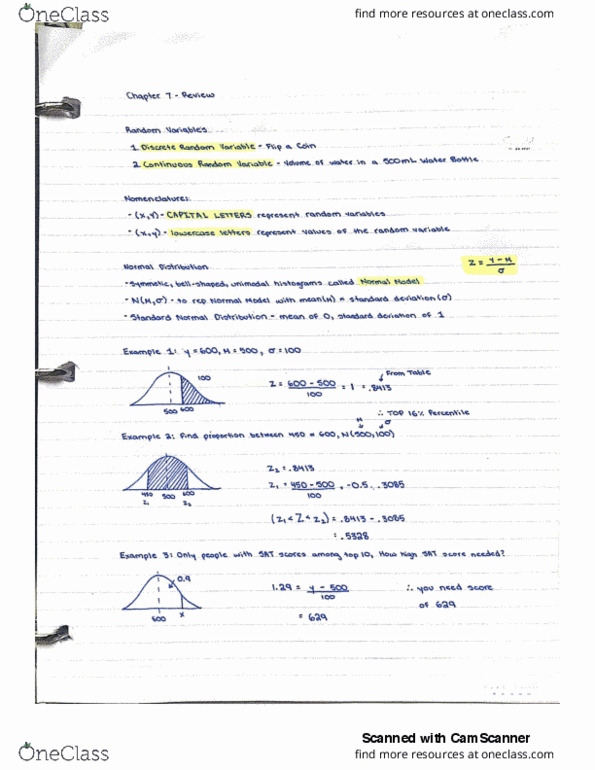 OneClass
find more resources at oneclass.com
Chapter 7 - Review
Random Variables
1. Discrete Random Variable - Flip a Coin
2. Continuous Random Variable - Volume of water in a 500mL Water Bottle
Nomenclature:
- (X,Y) - CAPITAL LETTERS represent random variables
- (x,y) - lowercase letters represent values of the random variable
Normal Distribution
Z = y - μ
σ
- Symmetric, bell-shaped, unimodal histograms called Normal Model
- N(μ,σ) - to rep Normal Model with mean(μ) + standard deviation(σ)
- Standard Normal Distribution - mean of 0, standard deviation of 1
Example 1: y = 600, μ = 500, σ = 100
From Table
100
500 600
Z = 600 - 500 = 1 = .8413
100
∴ TOP 16% Percentile
μ σ
Example 2: Find proportion between 450 + 600, N(500,100)
450 500 600
Z₁ Z₂
Z₂ = .8413
Z₁ = 450 - 500, -0.5, .3085
100
(Z₁ < Z < Z₂) = .8413 - .3085
= .5328
Example 3: Only people with SAT scores among top 10, How high SAT score needed?
0.9
500 x
1.29 = y - 500
100
= 629
∴ you need score
of 629
Scanned with CamScanner
OneClass
find more resources at oneclass.com